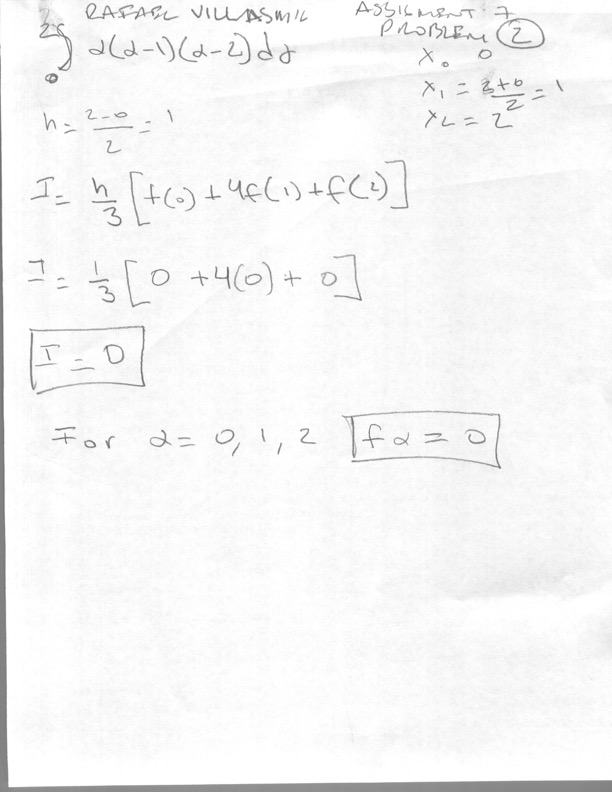 RAFAEL VILLASMIL ASSIGMENT: 7
PROBLEM 2
∫₀² α(α-1)(α-2) dα
x₀ 0
x₁ = 2+0/2 = 1
x₂ = 2
h = 2-0/2 = 1
I = h/3 [f(0) + 4f(1) + f(2)]
I = 1/3 [0 + 4(0) + 0]
I = 0
For α = 0, 1, 2 fα = 0